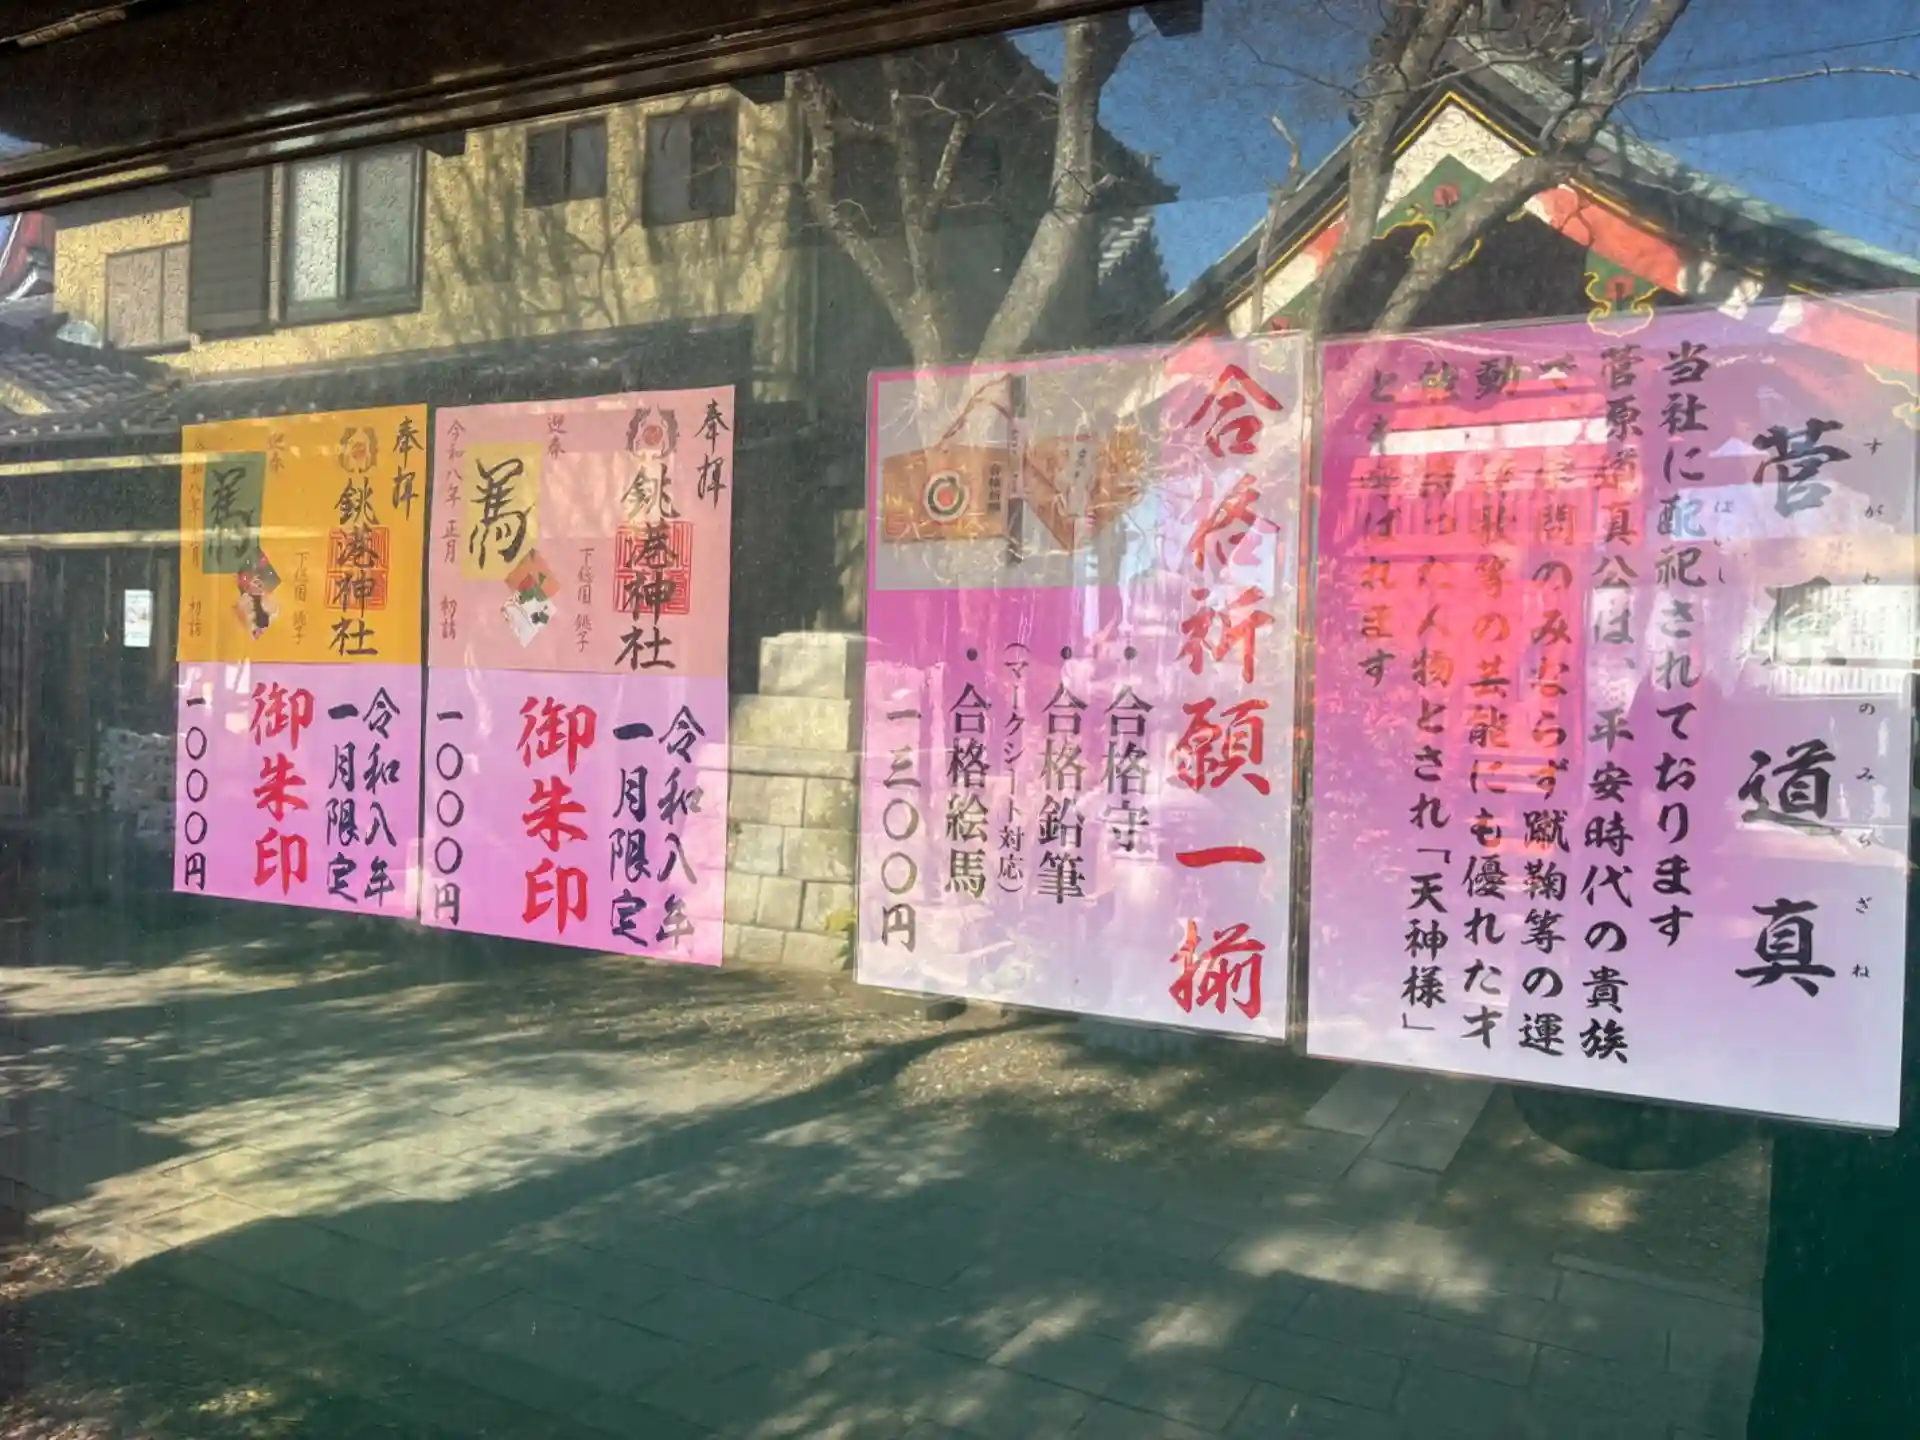 菅原道真
すがわらのみちざね
当社に配祀されております
はいし
菅原道真公は、平安時代の貴族
で、学問のみならず蹴鞠等の運
動、和歌等の芸能にも優れたオ
人物とされ「天神様」
とも呼ばれます
合格祈願一揃
・合格守
・合格鉛筆
（マークシート対応）
・合格絵馬
一三〇〇円
奉拝
銚港神社
下総国 銚子
迎春
令和八年 正月 初詣
令和八年
一月限定
御朱印
一〇〇〇円
奉拝
銚港神社
下総国 銚子
迎春
初詣
令和八年
一月限定
御朱印
一〇〇〇円